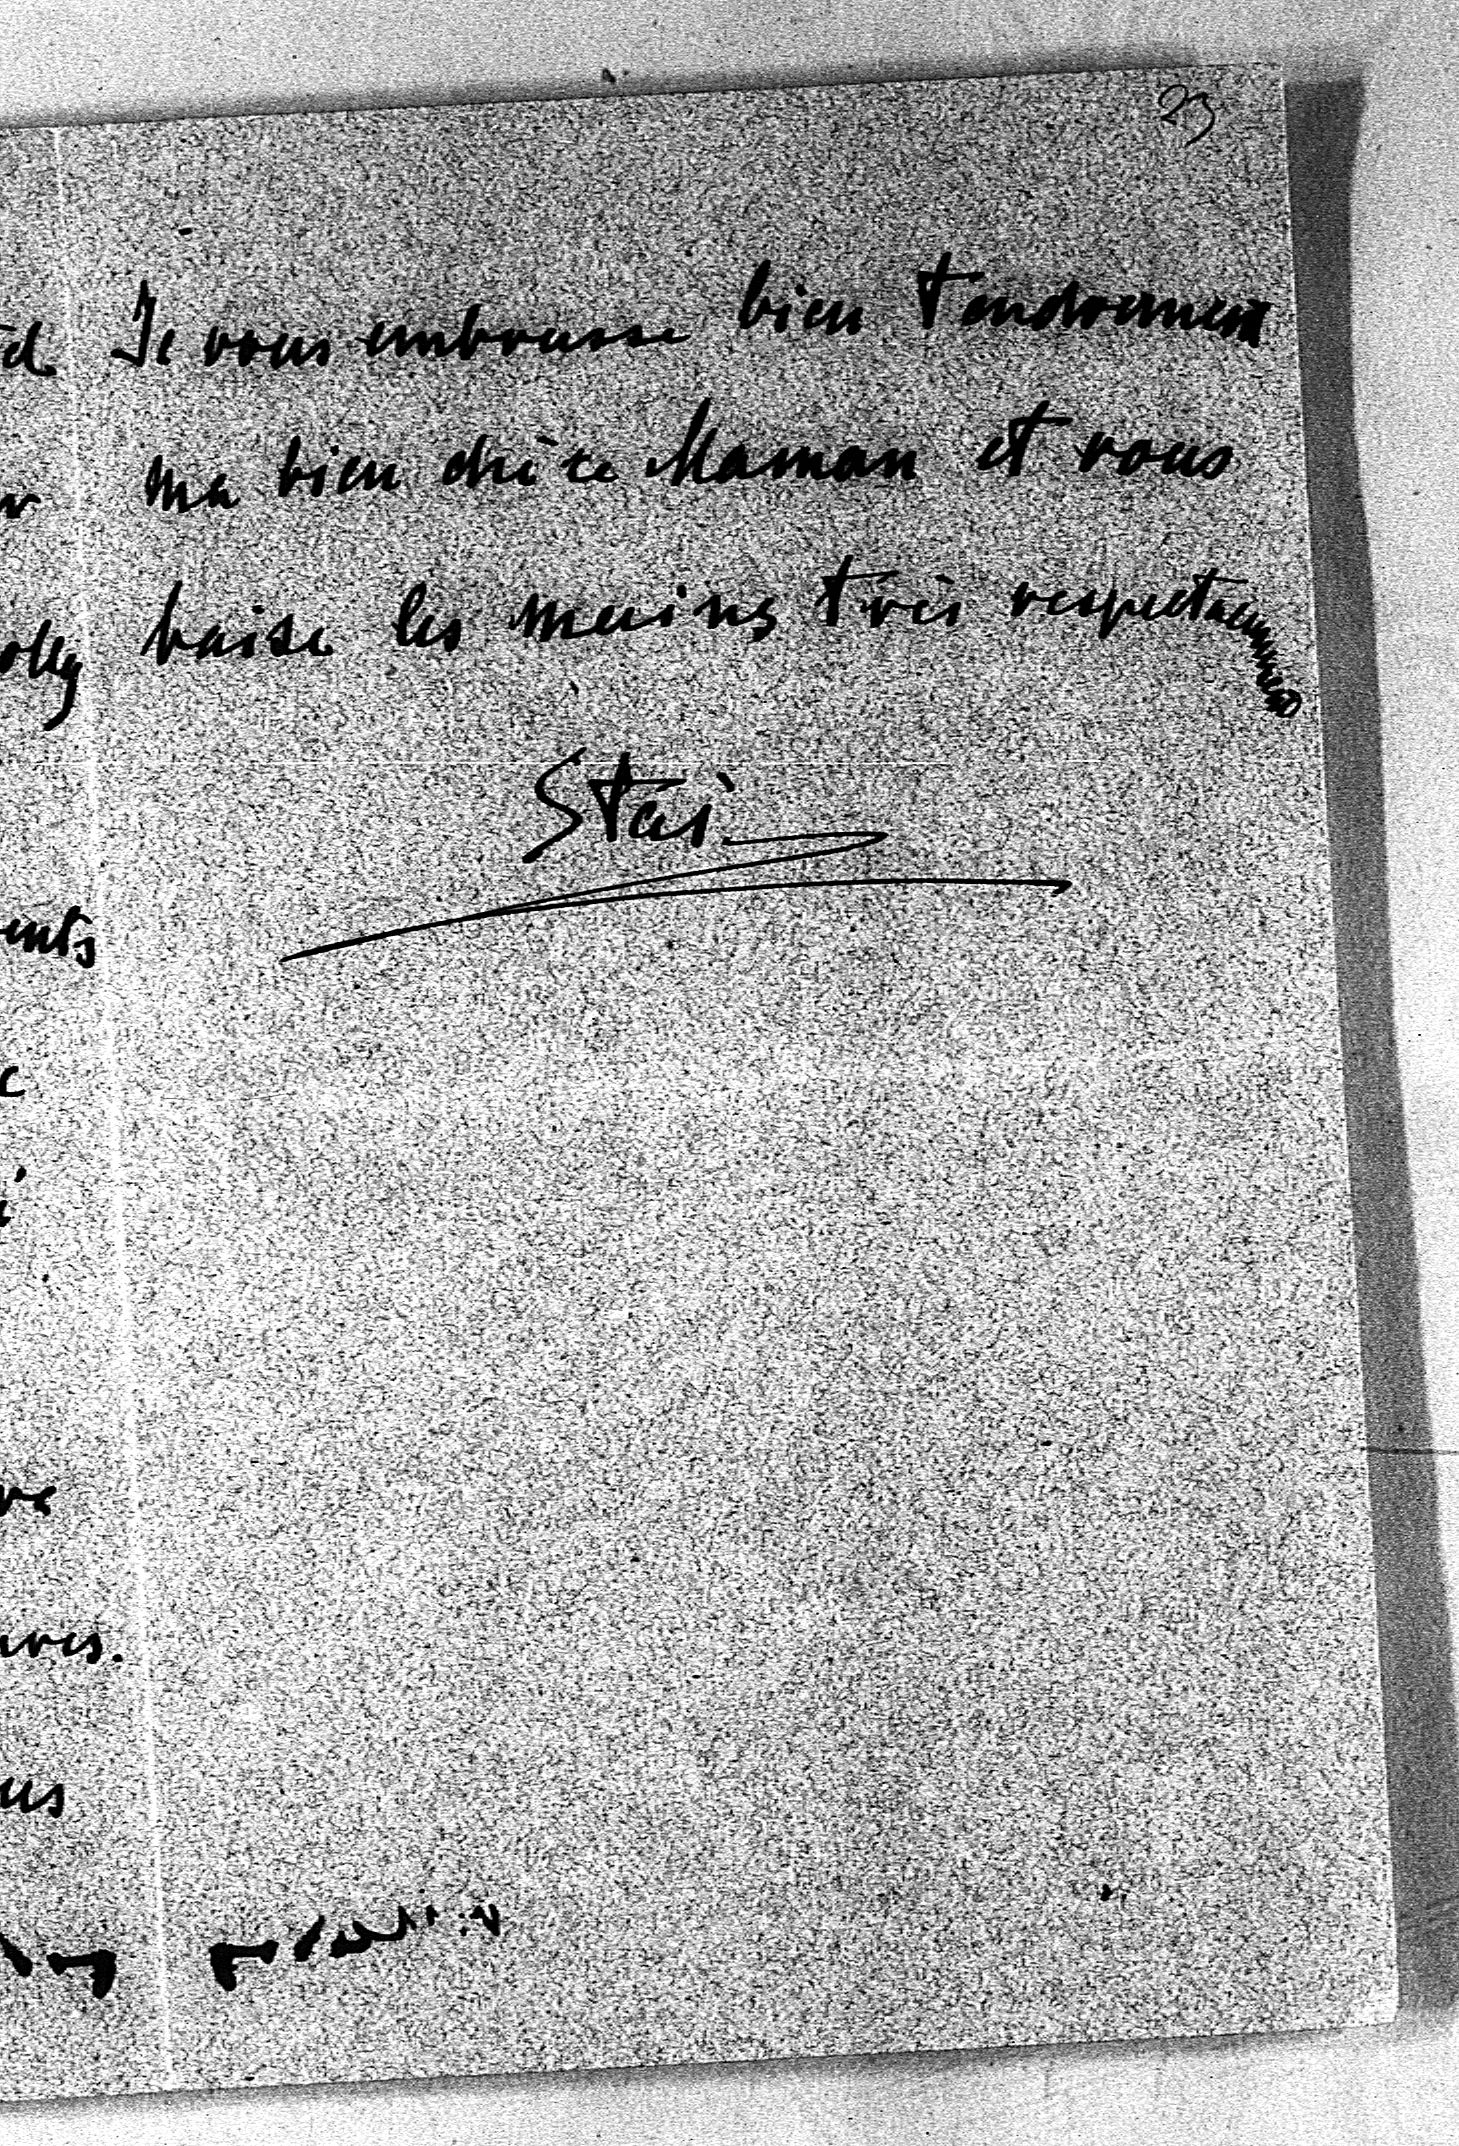 23
Je vous embrasse bien tendrement
ma bien chère Maman et vous
baise les mains très respectueusement
Stas
ents
ve
us